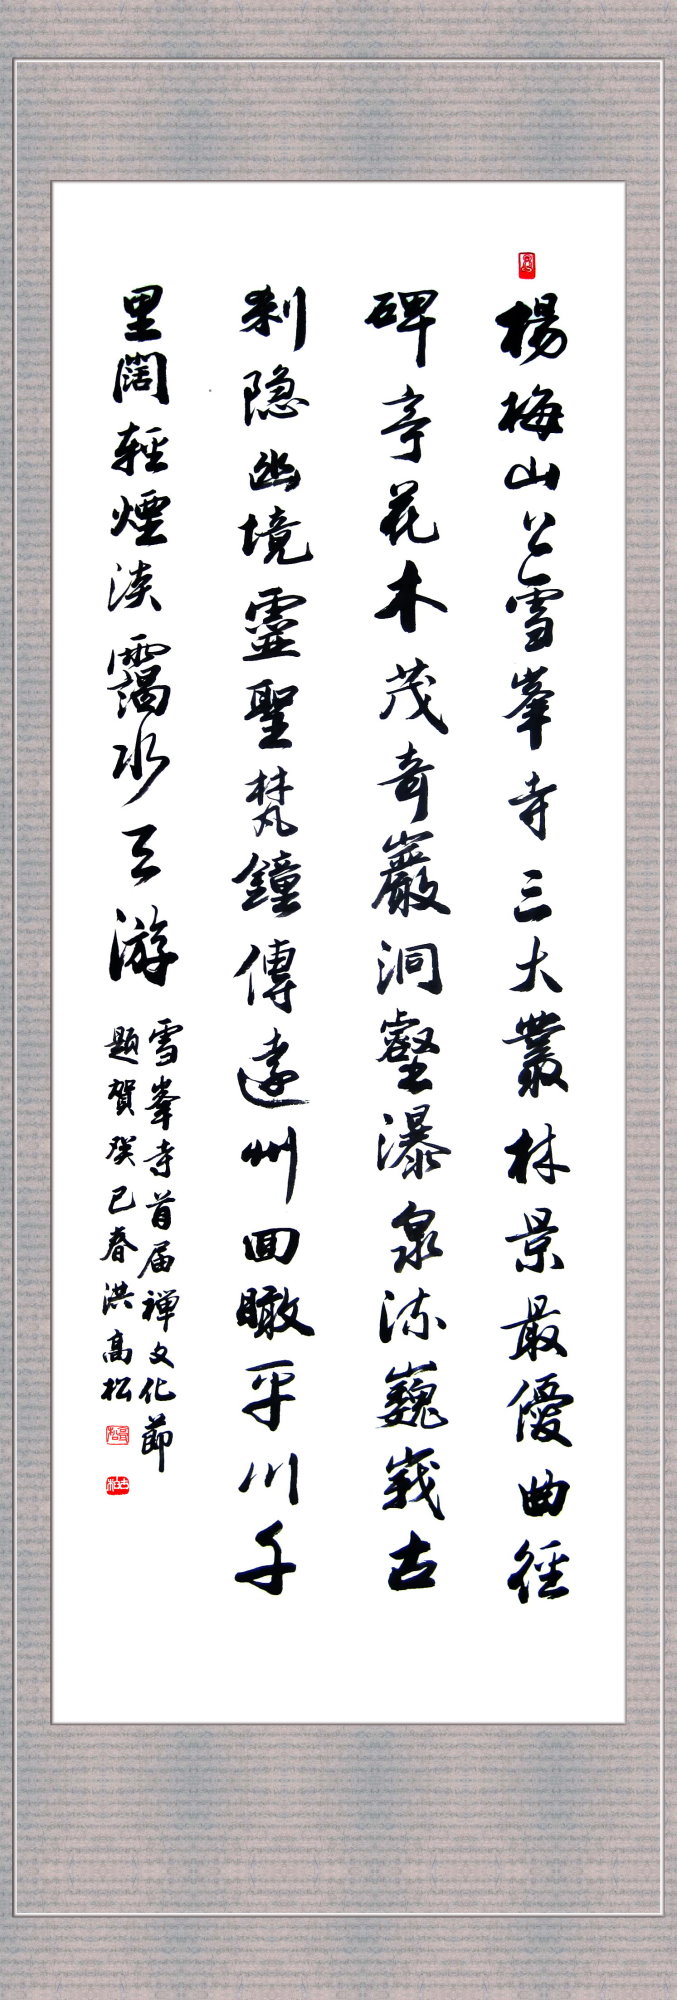 楊梅山上雪峯寺三大叢林景最優曲徑
碑亭花木茂奇巖洞壑瀑泉流巍峩古
刹隐幽境靈聖梵鐘傳遠州囬瞰平川千
里闊輕煙淡靄水云游
雪峯寺首届禅文化節
題賀癸巳春洪高松